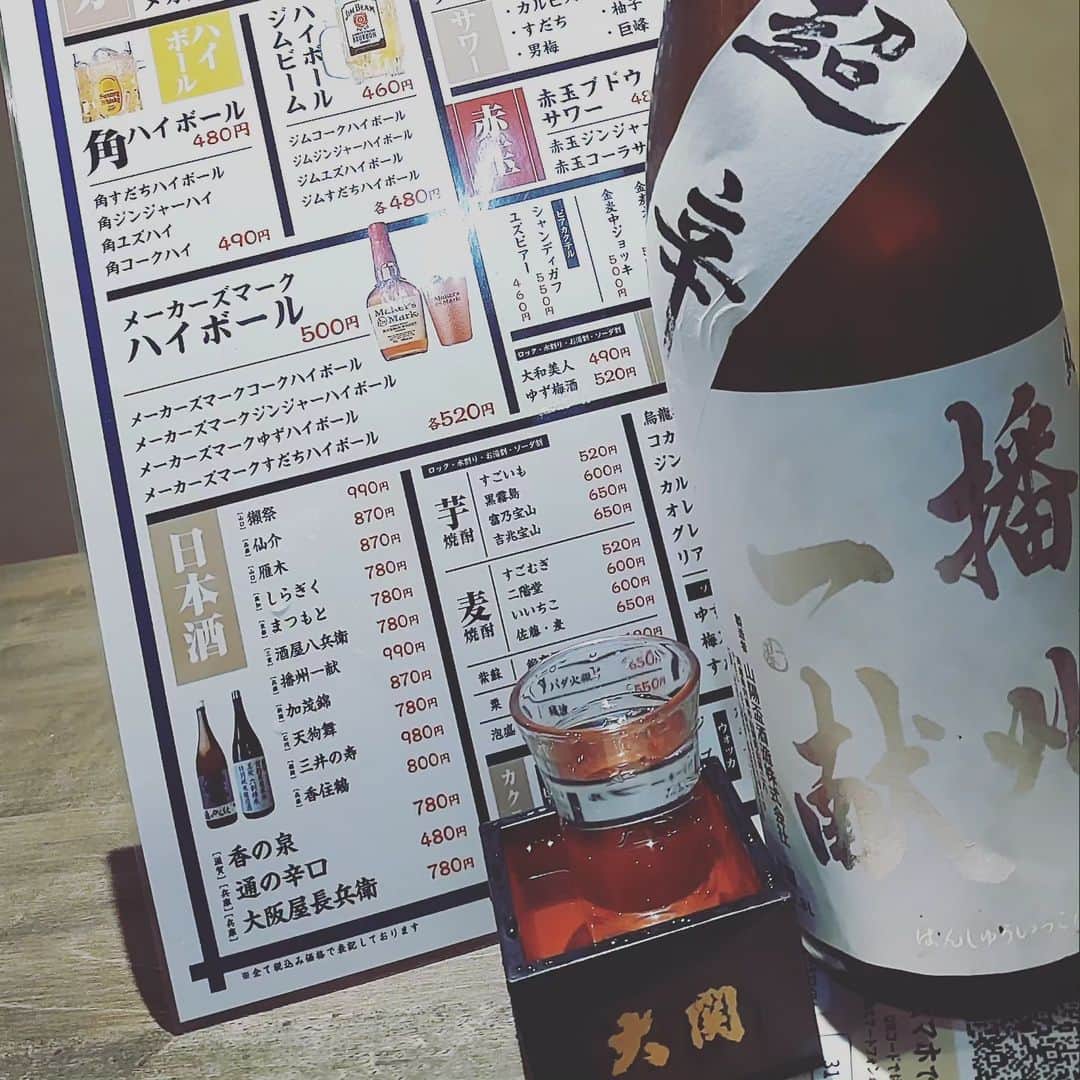 ハイボール
角ハイボール
480円
角すだちハイボール
角ジンジャーハイ
角ユズハイ
角コークハイ
490円
ハイボール
ジムビーム
JIM BEAM
BOURBON
460円
ジムコークハイボール
ジムジンジャーハイボール
ジムユズハイボール
ジムすだちハイボール
各480円
サワー
・すだち
・男梅
・柚子
・巨峰
赤玉
赤玉ブドウ
サワー
赤玉ジンジャー
赤玉コーラサ
ビアカクテル
シャンディガフ 550円
ユズビアー 460円
金麦中ジョッキ 500円
メーカーズマーク
ハイボール
500円
Maker's
Mark
メーカーズマークコークハイボール
メーカーズマークジンジャーハイボール
メーカーズマークゆずハイボール
メーカーズマークすだちハイボール
各520円
ロック・水割り・お湯割・ソーダ割
大和美人 490円
ゆず梅酒 520円
日本酒
獺祭 990円
仙介 870円
雁木 870円
しらぎく 780円
まつもと 780円
酒屋八兵衛 780円
播州一献 990円
加茂錦 870円
天狗舞 780円
三井の寿 980円
香住鶴 800円
[滋賀] 香の泉 780円
[兵庫] 通の辛口 480円
[兵庫] 大阪屋長兵衛 780円
※全て税込み価格で表記しております
ロック・水割り・お湯割・ソーダ割
芋焼酎
すごいも 520円
黒霧島 600円
富乃宝山 650円
吉兆宝山 650円
麦焼酎
すごむぎ 520円
二階堂 600円
いいちこ 600円
佐藤・麦 650円
紫蘇
栗
泡盛
650円
550円
ウォッカ
超辛
播州
一献
山陽盃酒造株式会社
ばんしゅういっこ
大関